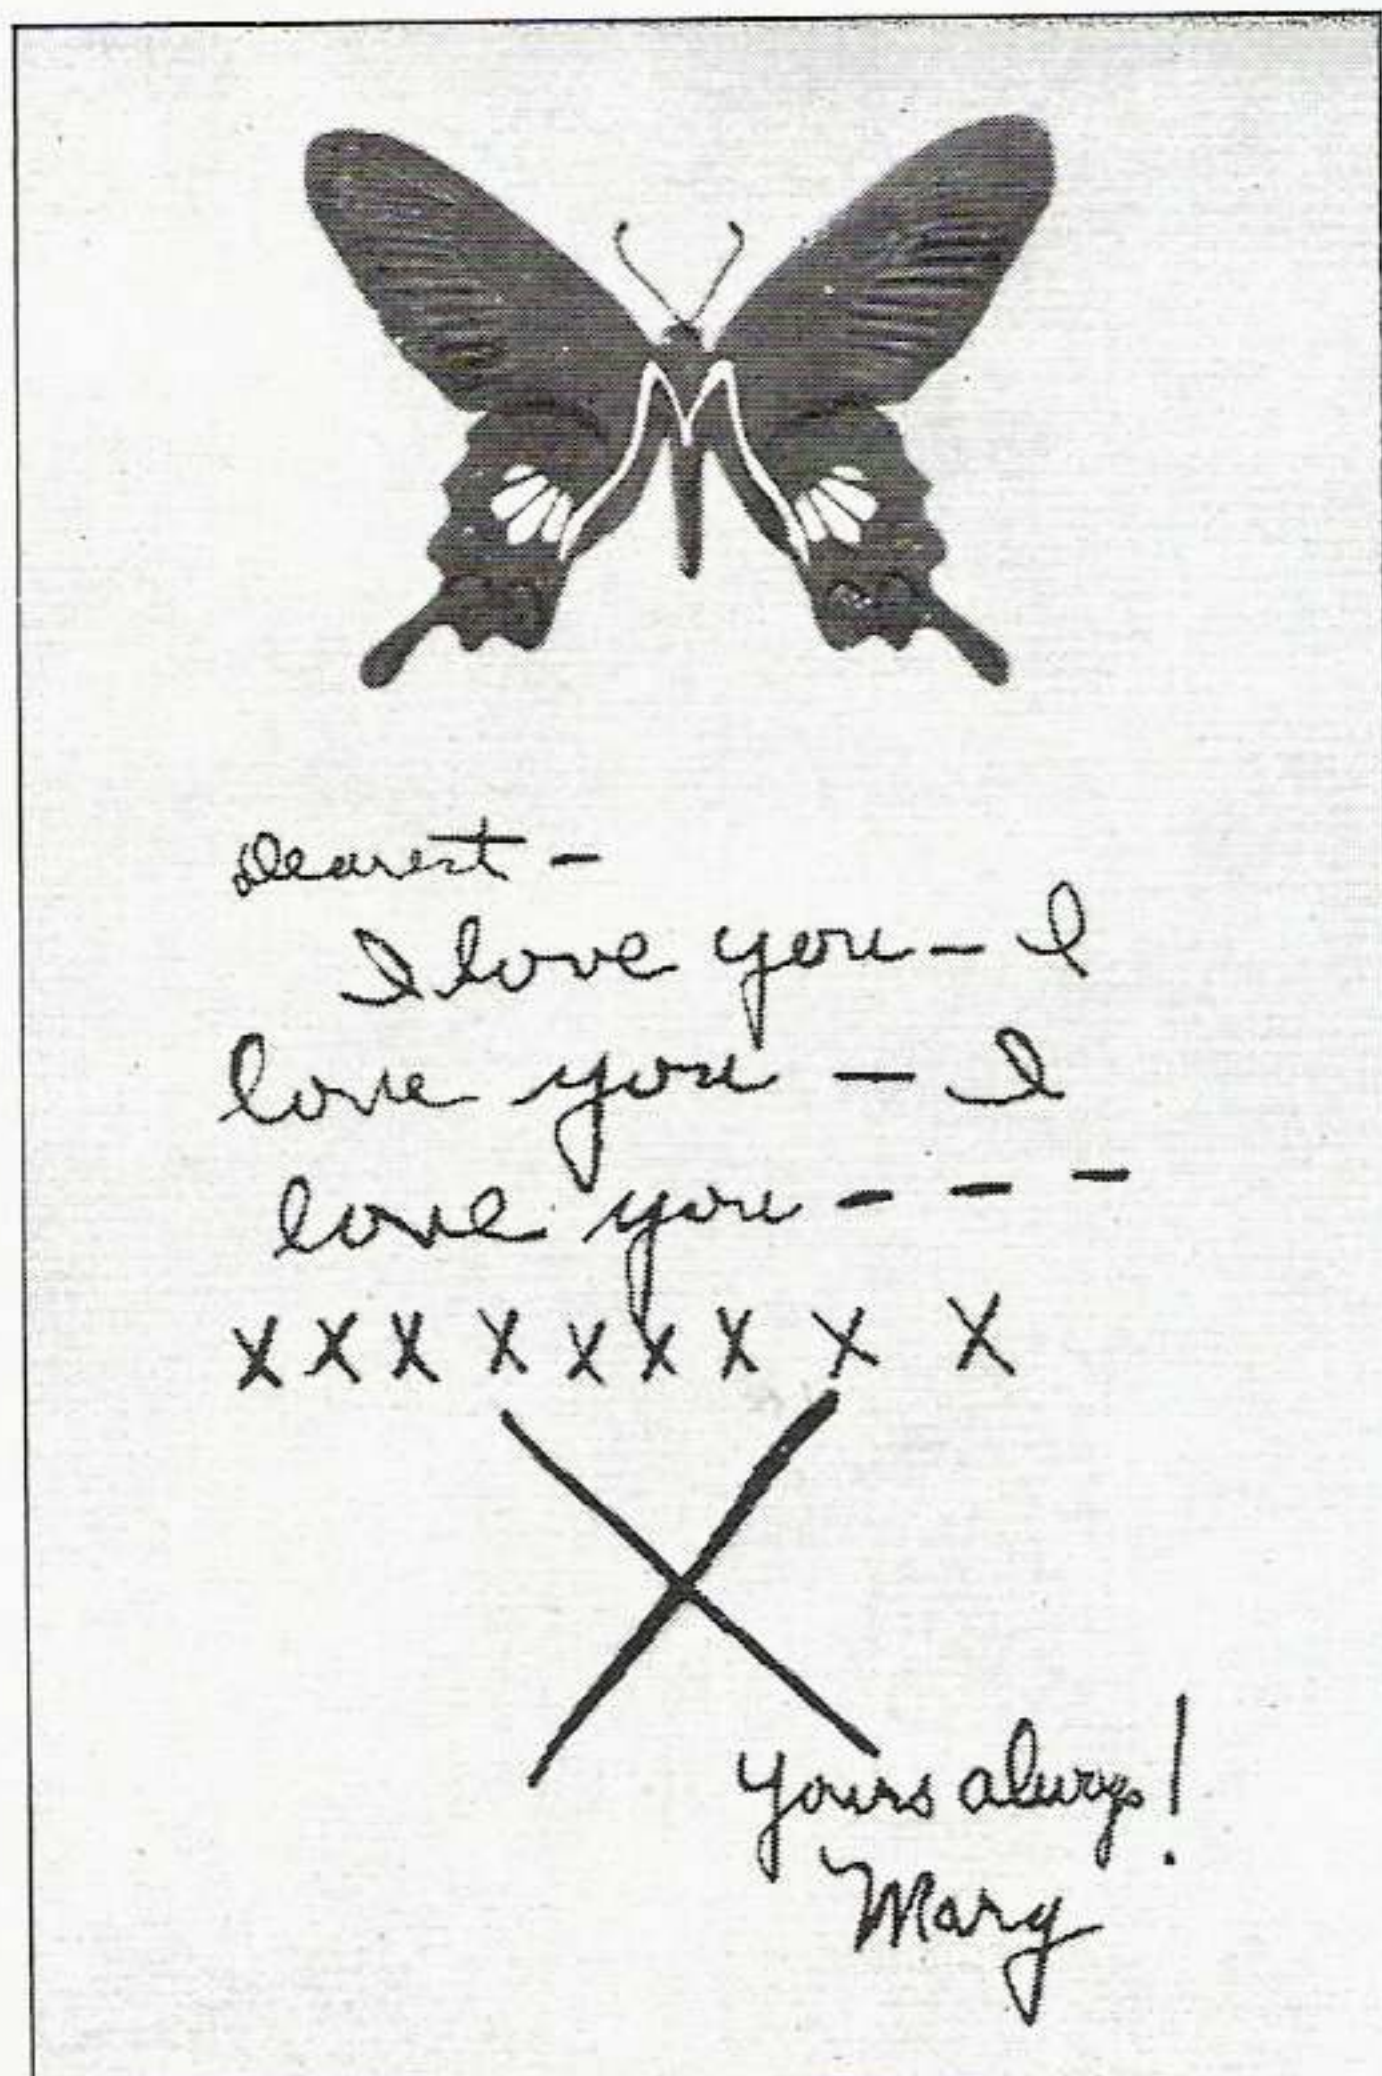 Dearest –
I love you – I
love you – I
love you - - -
X X X X X X X X X
X
yours always!
Mary